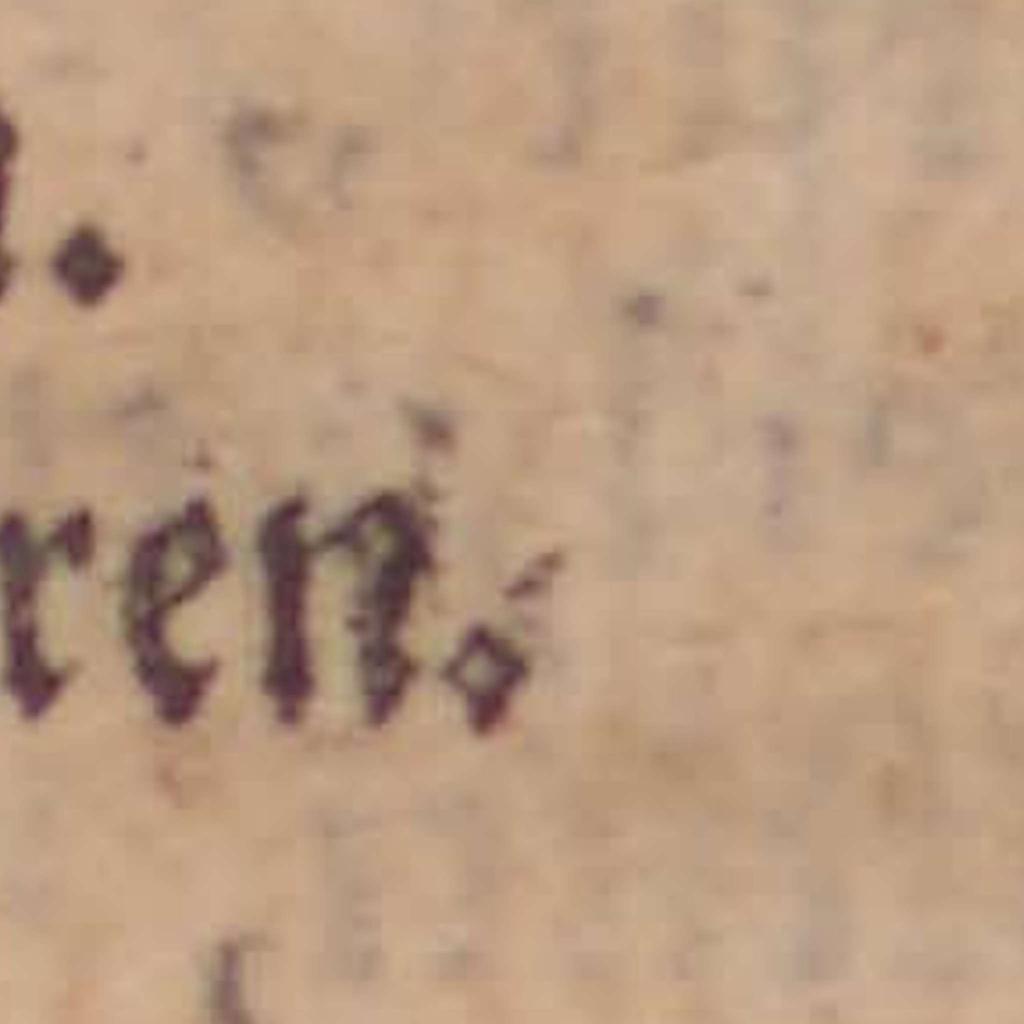 .
ren.